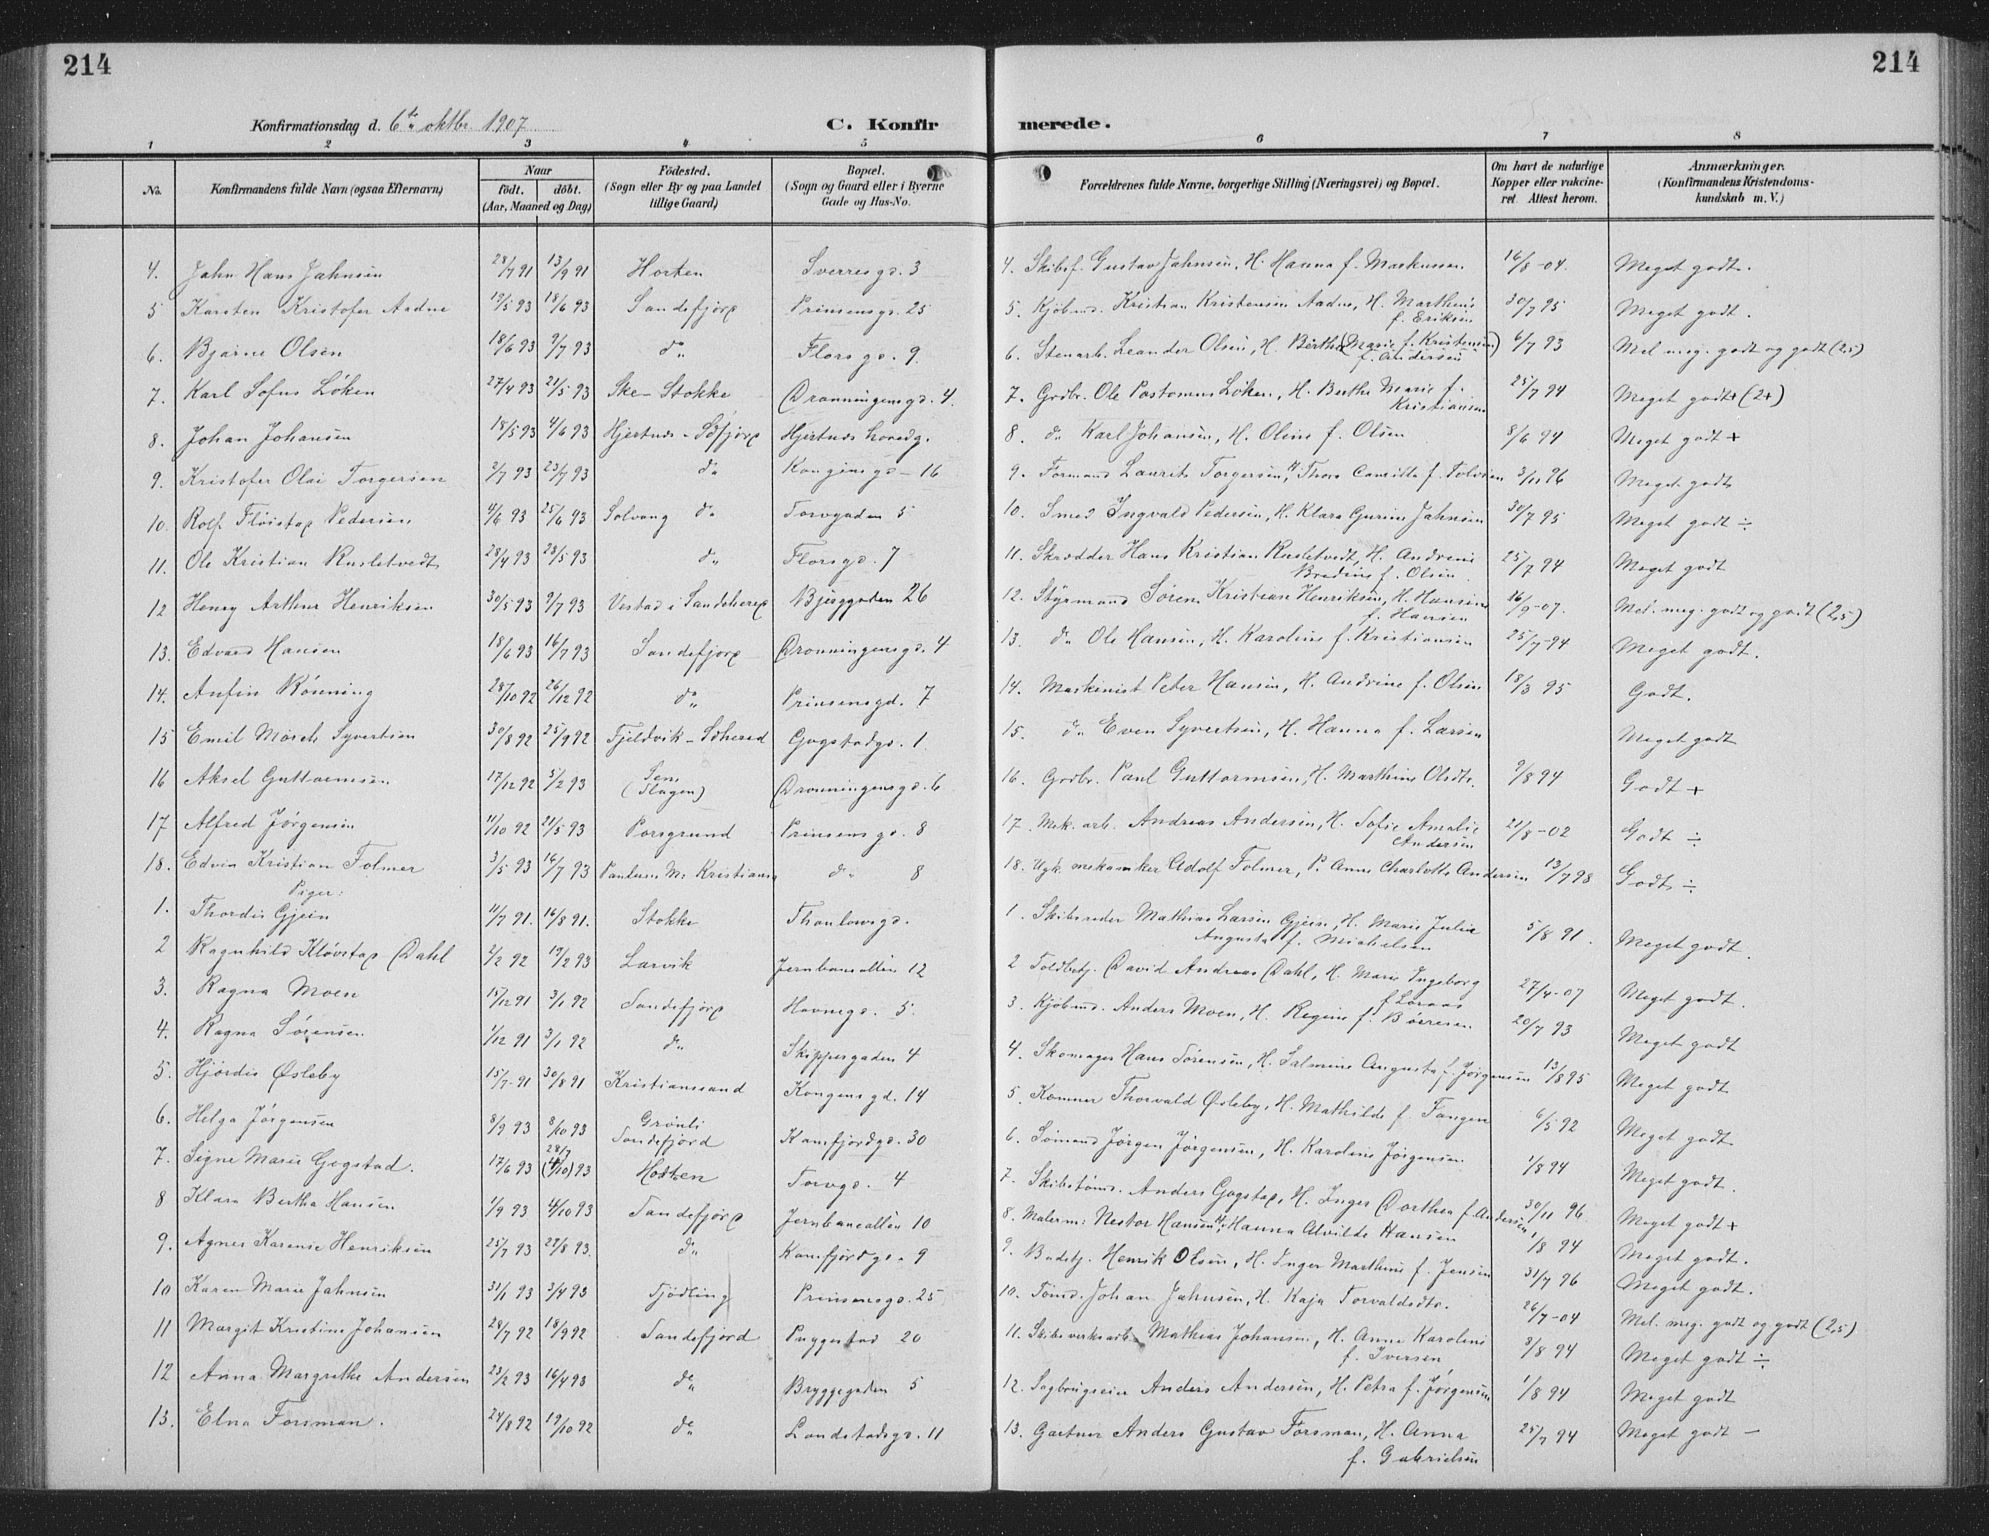 214
214
Konfirmationsdag d. 6te oktbr. 1907
C. Konfir
merede.
1 2 3 4 5 6 7 8
No. Konfirmandens fulde Navn (ogsaa Efternavn) Naar født. døbt. (Aar, Maaned og Dag) Födested. (Sogn eller By og paa Landet tillige Gaard) Bopæl. (Sogn og Gaard eller i Byerne Gade og Hus-No. Forældrenes fulde Navne, borgerlige Stilling (Næringsvei) og Bopæl. Om havt de naturlige Kopper eller vakcineret. Attest herom. Anmærkninger. (Konfirmandens Kristendomskundskab m. V.)
4. Jahn Hans Jahnsen 28/7 91 13/9 91 Horten Sverresgd. 3 4. Skibsf. Gustav Jahnsen, H. Hanna f. Markussen 16/8-04. Meget godt.
5 Karsten Kristofer Aadne 19/5 93 18/6 93 Sandefjord Prinsensgd. 25 5. Kjøbmd. Kristian Kristensen Aadne, H. Marthine f. Eriksen 30/7 95 Meget godt.
6. Bjarne Olsen 18/6 93 9/7 93 do Florsgd. 9. 6. Stenarb. Leander Olsen, H. Berthe (Marie f. Kristensen) f. Andersen 6/7 93 Mel. meg. godt og godt (2,5)
7. Karl Sofus Løken 27/4 93 21/5 93 Ske - Stokke Dronningensgd. 4. 7. Grdbr. Ole Løken, H. Berthe Marie f. Kristiansen 25/7 94 Meget godt + (2+)
8. Johan Johansen 18/5 93 4/6 93 Hjertnes - Sdfjord Hjertnes hovedg. 8. do Karl Johansen, H. Oline f. Olsen 8/6 94 Meget godt +
9. Kristofer Olai Torgersen 2/7 93 23/7 93 do Kongensgd - 16 9. Formand Laurits Torgersen, H. Thora Camilla f. 3/11 96 Meget godt
10. Rolf Fløistad Pedersen 4/6 93 25/6 93 Solvang do Torvgaden 5 10. Smed Ingvald Pedersen, H. Klara Gurine Jahnsen 30/7 95 Meget godt ÷
11. Ole Kristian Rusletvedt 28/4 93 28/5 93 do Florsgd. 7 11. Skrædder Hans Kristian Rusletvedt, H. Andrine f. Olsen. 25/7 94 Meget godt
12 Henry Arthur Henriksen 30/5 93 9/7 93 Vestad i Sandeherred Bjerggaden 26 12. Styrmand Søren Kristian Henriksen, H. Hansine f. Hansen 16/9-07. Mel. meg. godt og godt (2,5)
13. Edvard Hansen 18/6 93 16/7 93 Sandefjord Dronningensgd. 4 13. do Ole Hansen, H. Karoline f. Kristiansen 25/7-94 Meget godt.
14. Anfin Rønning 28/10 92 26/12 92 do Prinsensgd. 7 14. Maskinist Peter Hansen, H. Andrine f. Olsen 18/3 95 Godt.
15 Emil Mørch Syvertsen 30/8 92 25/9 92 Fjeldvik - Sdherred Gogstadgd. 1. 15. do Even Syvertsen, H. Hanna f. Larsen Meget godt
16 Aksel Guttormsen 17/12 92 5/2 93 Sem (Slagen) Dronningensgd. 6 16. Grdbr. Paul Guttormsen, H. Marthine Olsdtr. 9/8 94 Godt +
17 Alfred Jørgensen 11/10 92 21/5 93 Porsgrund Prinsensgd. 8 17. Mek. arb. Andreas Andersen, H. Sofie Amalie Andersen 21/8-02 Godt ÷
18. Edvin Kristian Folmer 3/5 93 16/7 93 M: Kristiania do 8 18. Ugk. mekaniker Adolf Folmer, P. Anna Charlotte Andersen 13/7 98 Godt ÷
Piger:
1. Thordis Gjein 11/7 91. 16/8 91. Stokke Thaulowsgd. 1. Skibsreder Mathias Larsen Gjein, H. Marie Julie Augusta f. Michelsen 5/8 91. Meget godt.
2 Ragnhild Kløvstad Dahl 2/2 92 19/2 93 Larvik Jernbanealléen 12 2 Toldbetj. David Andreas Dahl, H. Marie Ingeborg f. 27/4-07 Meget godt.
3. Ragna Moen 15/12 91 3/1 92 Sandefjord Havnegd. 5. 3. Kjøbmd. Anders Moen, H. Regine f. Børresen 20/7 93 Meget godt
4. Ragna Sørensen 1/12 91 3/1 92 do Skippergaden 4 4. Skomager Hans Sørensen, H. Salmine Augusta f. Jørgensen 13/8 95 Meget godt
5. Hjørdis Øsleby 15/7-91 30/8 91 Kristianssand Kongensgd. 14 5. Kæmner Thorvald Øsleby, H. Mathilde f. Tangen 6/5 92 Meget godt
6. Helga Jørgensen 8/9 93 8/10 93 Grønli Sandefjord Kamfjordgd. 30 6. Sømand Jørgen Jørgensen, H. Karoline Jørgensen 1/8 94 Meget godt.
7. Signe Marie Gogstad. 17/6 93 28/7 (4/10) 93 Horten Torvgd. 4 7. Skibstømd. Anders Gogstad, H. Inger Dorthea f. Andersen 30/11 96. Meget godt +
8 Klara Bertha Hansen 1/9 93 4/10 93 Sandefjord Jernbanealléen 10 8. Malerm: Nestor Hansen, H. Hanna Alvilde Hansen 1/8 94 Meget godt.
9. Agnes Karenie Henriksen 25/7 93 27/8 93. do Kamfjordgd. 9 9. Budetj. Henrik Olsen, H. Inger Marthine f. Jensen 31/7 96 Meget godt.
10 Karen Marie Jahnsen 31/1 93 3/4 93 Tjødling Prinsensgd. 25 10. Tømd. Johan Jahnsen, H. Kaja Torvaldsdtr. 26/7-04 Mel. meg. godt og godt (2,5)
11 Margit Kristine Johansen 28/7 92 18/9 92 Sandefjord Puggestad 20 11. Skibsverksarb. Mathias Johansen, H. Anne Karoline f. Iversen 8/8 94 Meget godt ÷
12 Anna Margrethe Andersen 23/2 93 16/4 93 do Bryggegaden 5 12. Sagbrugseier Anders Andersen, H. Petra f. Jørgensen 1/8 94 Meget godt
13. Elna Forsman. 24/8 92 19/10 92 do Landstadsgd. 11 13. Gartner Anders Gustav Forsman, H. Anna f. Gabrielsen 25/7 94 Meget godt -